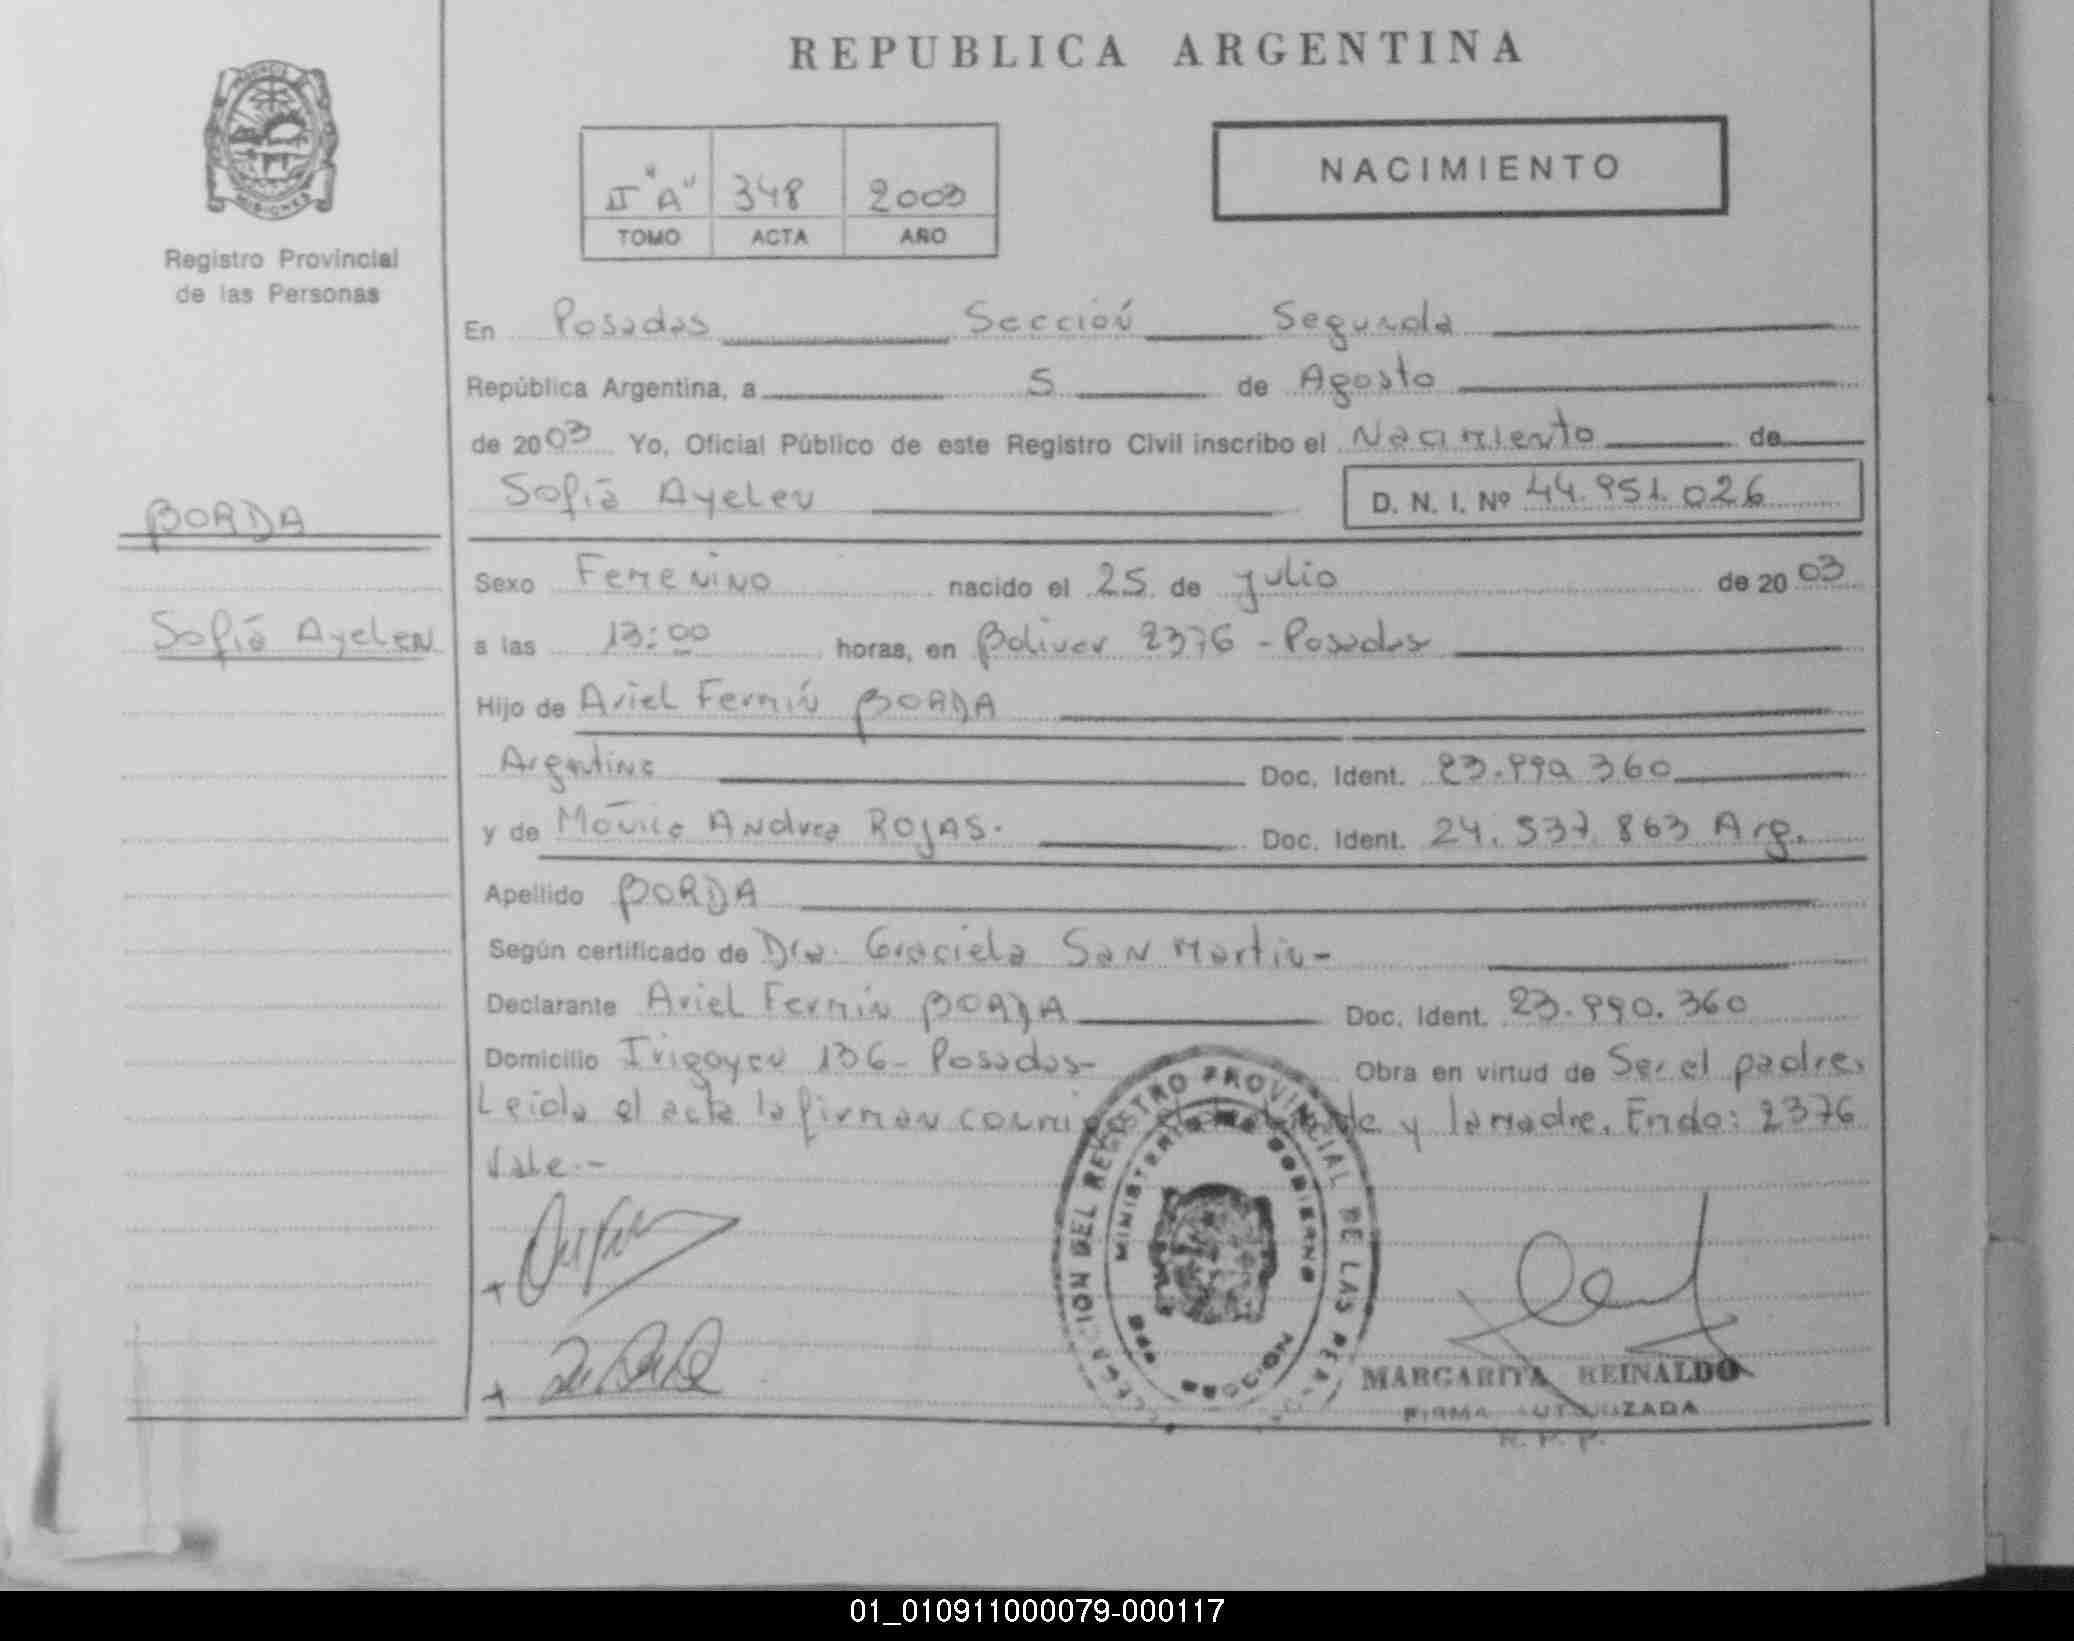 REPUBLICA ARGENTINA
NACIMIENTO
II "A" 348 2003
TOMO ACTA AÑO
Registro Provincial
de las Personas
En Posadas Sección Segunda
República Argentina, a 5 de Agosto
de 2003 Yo, Oficial Público de este Registro Civil inscribo el Nacimiento de
Sofiā Ayelen D. N. I. Nº 44.951.026
BORDA
Sexo Femenino nacido el 25 de julio de 2003
Sofiā Ayelen
a las 13:00 horas, en Bolivar 2376 - Posadas
Hijo de Ariel Fermín BORDA
Argentino Doc. Ident. 23.990.360
y de Mónica Andrea ROJAS. Doc. Ident. 24.537.863 Arg.
Apellido BORDA
Según certificado de Dra. Graciela San Martin-
Declarante Ariel Fermín BORDA Doc. Ident. 23.990.360
Domicilio Irigoyen 136- Posadas- Obra en virtud de Ser el padre.
Leida el acta la firman conmigo y la madre. Endo: 2376
Vale.-
DELEGACION DEL REGISTRO PROVINCIAL DE LAS PERSONAS
MINISTERIO DE GOBIERNO
MARGARITA REINALDO
FIRMA AUTORIZADA
R. P. P.
01_010911000079-000117